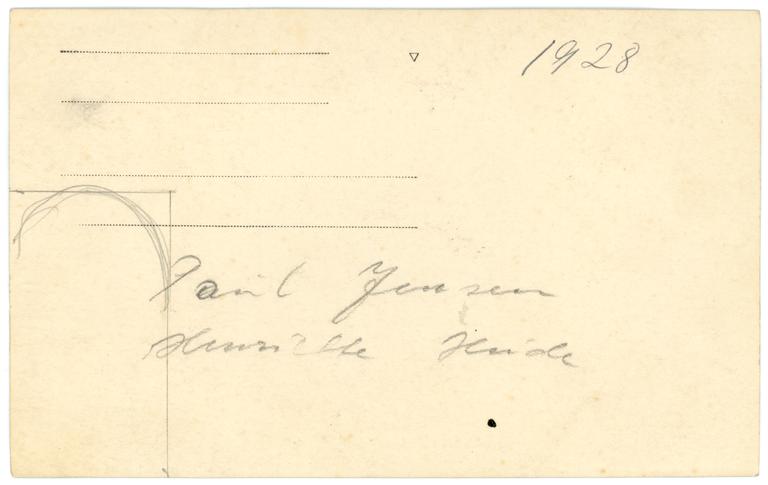 1928
Paul Jensen
Henriette Heide